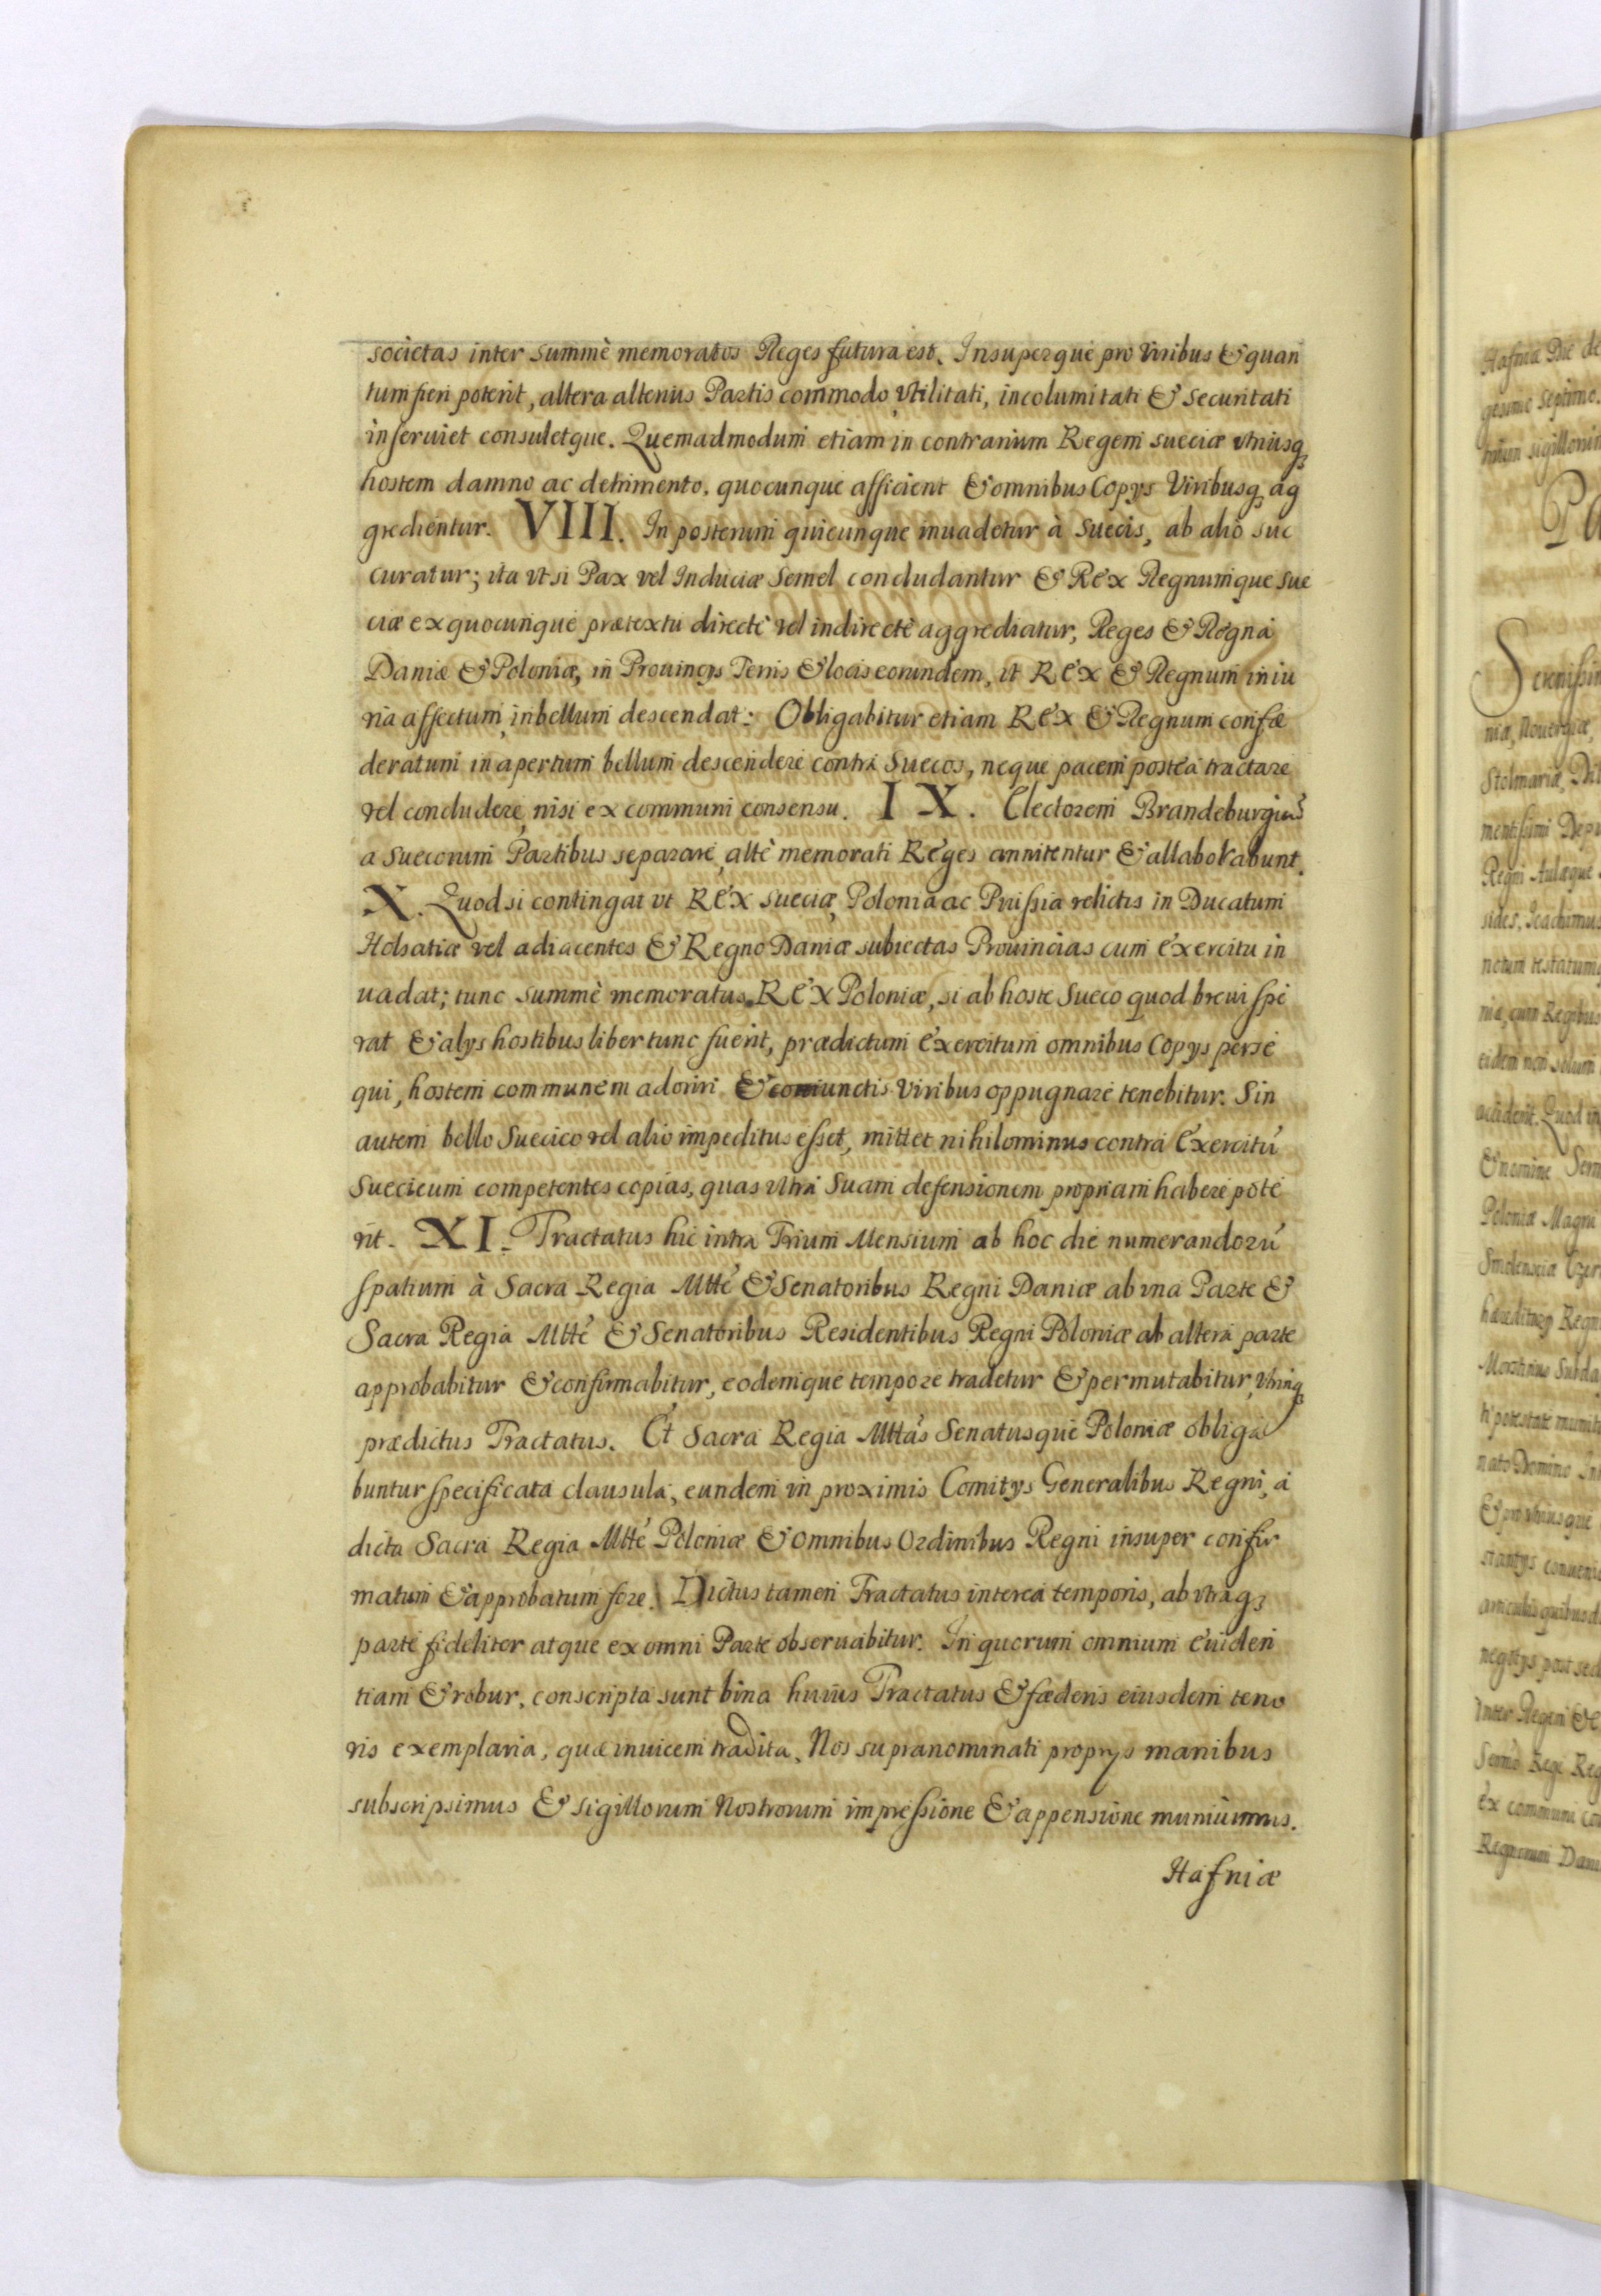 societas inter summè memoratos Reges futura est. Insuperque pro Viribus & quan
tum fieri poterit, altera alterius Partis commodo, vtilitati, incolumitati & securitati
inseruiet consuletque. Quemadmodum etiam in contrarium Regem sueciæ vtriusq3
hostem damno ac detrimento, quocunque afficient & omnibus Copys Viribusq3 ag
gredientur. VIII. In posterum quicunque inuadetur à Suecis, ab alio suc
curatur; ita vt si Pax vel Induciæ Semel concludantur & REX Regnumque Sue
ciæ ex quocunque prætextu directè vel indirectè aggrediatur, Reges & Regna
Daniæ & Poloniæ, in Prouincys Terris & locis eorundem, vt REX & Regnum iniu
ria affectum, in bellum descendat: Obligabitur etiam REX & Regnum confæ
deratum in apertum bellum descendere contra Suecos, neque pacem postea tractare
vel concludere nisi ex communi consensu. IX. Electorem Brandeburgiu
a suecorum Partibus separare, altè memorati Reges annitentur & allaborabunt.
X. Quod si contingat vt REX sueciæ, Polonia ac Prussia relictis in Ducatum
Holsatiæ vel adiacentes & Regno Daniæ subiectas Prouincias cum Exercitu in
uadat; tunc summè memoratus REX Poloniæ, si ab hoste Sueco quod breui spe
rat & alys hostibus liber tunc fuerit, prædictum Exercitum omnibus Copys perse
qui, hostem communem adoriri & coniunctis Viribus oppugnare tenebitur. Sin
autem bello Suecico vel alio impeditus esset, mittet nihilominus contra Exercitū
Suecicum competentes copias, quas vltra Suam defensionem propriam habere pote
rit. XI. Tractatus hic intra Trium Mensium ab hoc die numerandorū
spatium à Sacra Regia Mtte & Senatoribus Regni Daniæ ab vna Parte &
Sacra Regia Mtte & Senatoribus Residentibus Regni Poloniæ ab altera parte
approbabitur & confirmabitur, eodemque tempore tradetur & permutabitur, vtrinq3
prædictus Tractatus. Et Sacra Regia Mttas Senatusque Poloniæ obliga
buntur specificata clausula, eundem in proximis Comitys Generalibus Regni, a
dicta Sacra Regia Mtte Poloniæ & omnibus Ordinibus Regni insuper confir
matum & approbatum fore. Dictus tamen Tractatus interea temporis, ab vtraq3
parte fideliter atque ex omni Parte obseruabitur. In quorum omnium Euiden
tiam & robur, conscripta sunt bina huius Tractatus & fæderis eiusdem teno
ris exemplaria, quæ inuicem tradita, Nos supranominati proprys manibus
subscripsimus & sigillorum Nostrorum impressione & appensione muniuimus.
Hafniæ